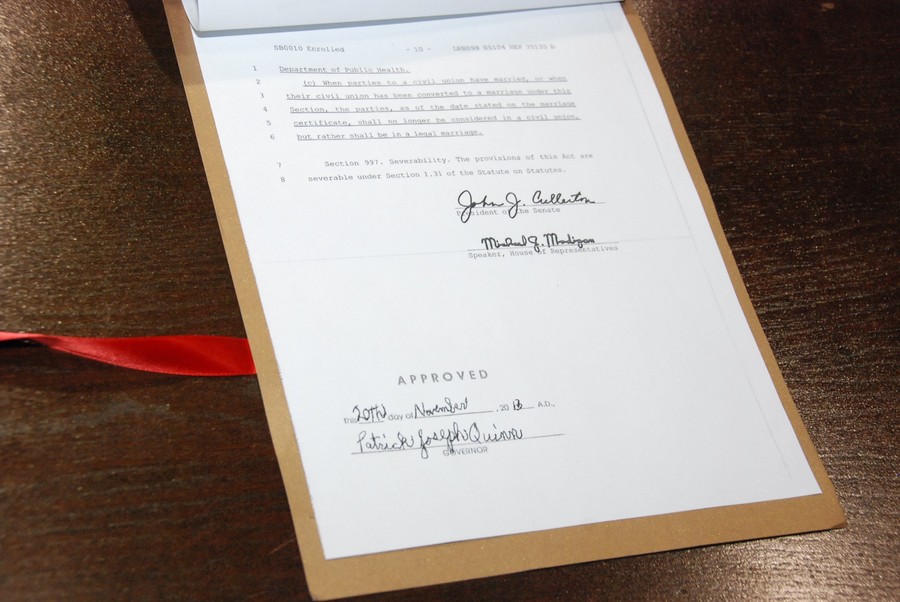 SB0010 Enrolled - 10 - LRB098 05104 HEP 35135 b
1 Department of Public Health.
2 (c) When parties to a civil union have married, or when
3 their civil union has been converted to a marriage under this
4 Section, the parties, as of the date stated on the marriage
5 certificate, shall no longer be considered in a civil union,
6 but rather shall be in a legal marriage.
7 Section 997. Severability. The provisions of this Act are
8 severable under Section 1.31 of the Statute on Statutes.
John J. Cullerton
President of the Senate
Michael J. Madigan
Speaker, House of Representatives
APPROVED
this 20th day of November, 2013 A.D.,
Patrick Joseph Quinn
GOVERNOR